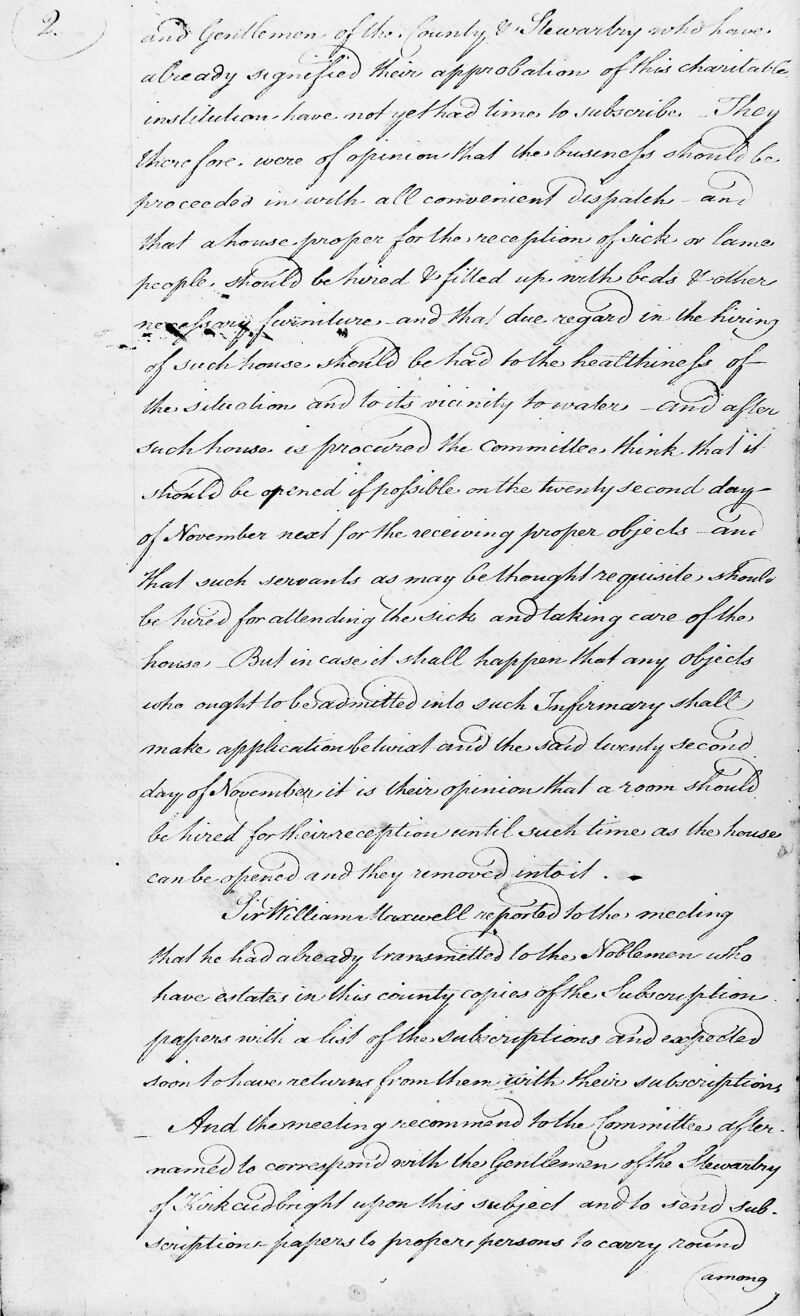 2.
and Gentlemen of the County & Stewartry who have
already signified their approbation of this charitable
institution have not yet had time to subscribe - They
therefore were of opinion that the business should be
proceeded in with all convenient dispatch - and
that a house proper for the reception of sick or lame
people should be hired & fitted up with beds & other
necessary furniture - and that due regard in the hiring
of such house should be had to the healthiness of
the situation and to its vicinity to water - and after
such house is procured the Committee think that it
should be opened if possible on the twenty second day
of November next for the receiving proper objects - and
that such servants as may be thought requisite should
be hired for attending the sick and taking care of the
house - But in case it shall happen that any objects
who ought to be admitted into such Infirmary shall
make application betwixt and the said twenty second
day of November it is their opinion that a room should
be hired for their reception until such time as the house
can be opened and they removed into it . -
Sir William Maxwell reported to the meeting
that he had already transmitted to the Noblemen who
have estates in this county copies of the Subscription
papers with a list of the subscriptions and expected
soon to have returns from them with their subscriptions
- And the meeting recommend to the Committee after-
named to correspond with the Gentlemen of the Stewartry
of Kirkcudbright upon this subject and to send sub-
scription papers to proper persons to carry round
among